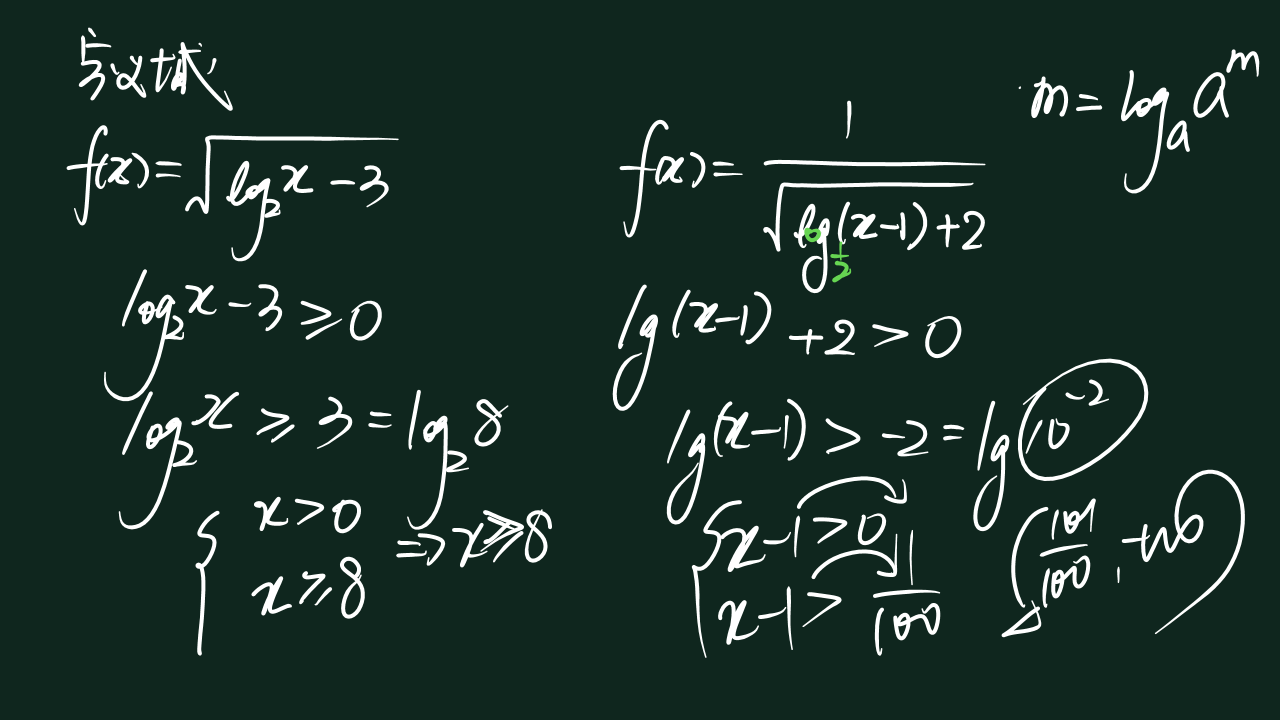 定义域
f(x) = √(log₂x - 3)
log₂x - 3 ⩾ 0
log₂x ⩾ 3 = log₂8
{ x > 0
x ⩾ 8
⇒ x ⩾ 8
f(x) = 1/√(log_{1/2}(x-1) + 2)
lg(x-1) + 2 > 0
lg(x-1) > -2 = lg 10⁻²
{ x-1 > 0
x-1 > 1/100
(101/100, +∞)
m = logₐaᵐ